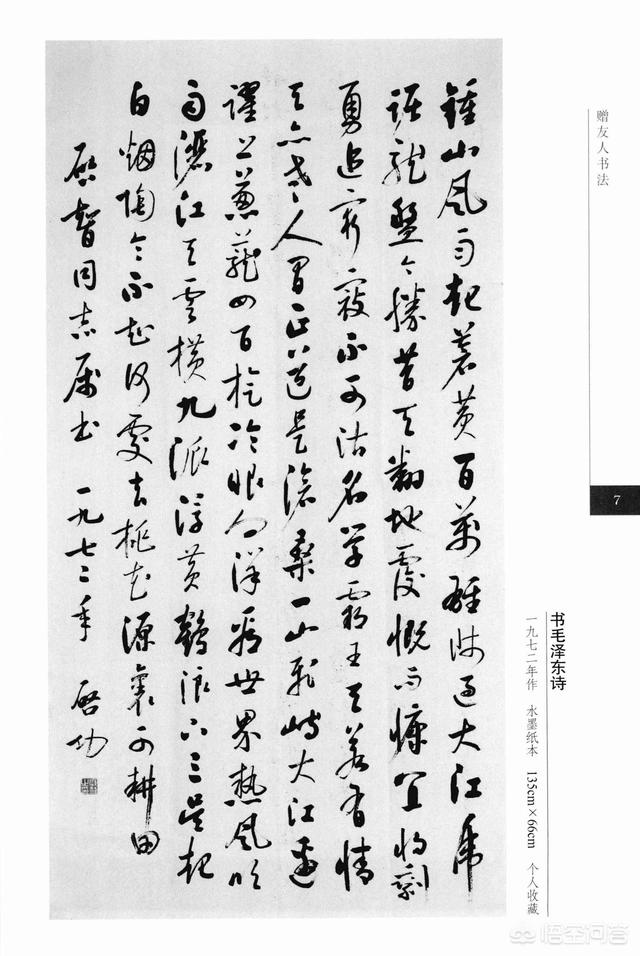 赠友人书法
鍾山風雨起蒼黄百萬雄師過大江虎
踞龍盤今勝昔天翻地覆慨而慷宜将剩
勇追窮寇不可沽名學霸王天若有情
天亦老人間正道是滄桑一山飛峙大江邊
躍上葱蘢四百旋冷眼向洋看世界熱風吹
雨灑江天雲横九派浮黄鶴浪下三吴起
白烟陶令不知何處去桃花源裏可耕田
啓智同志属书 一九七二年 启功
7
书毛泽东诗
一九七二年作 水墨纸本 135cm×66cm 个人收藏
悟空问答